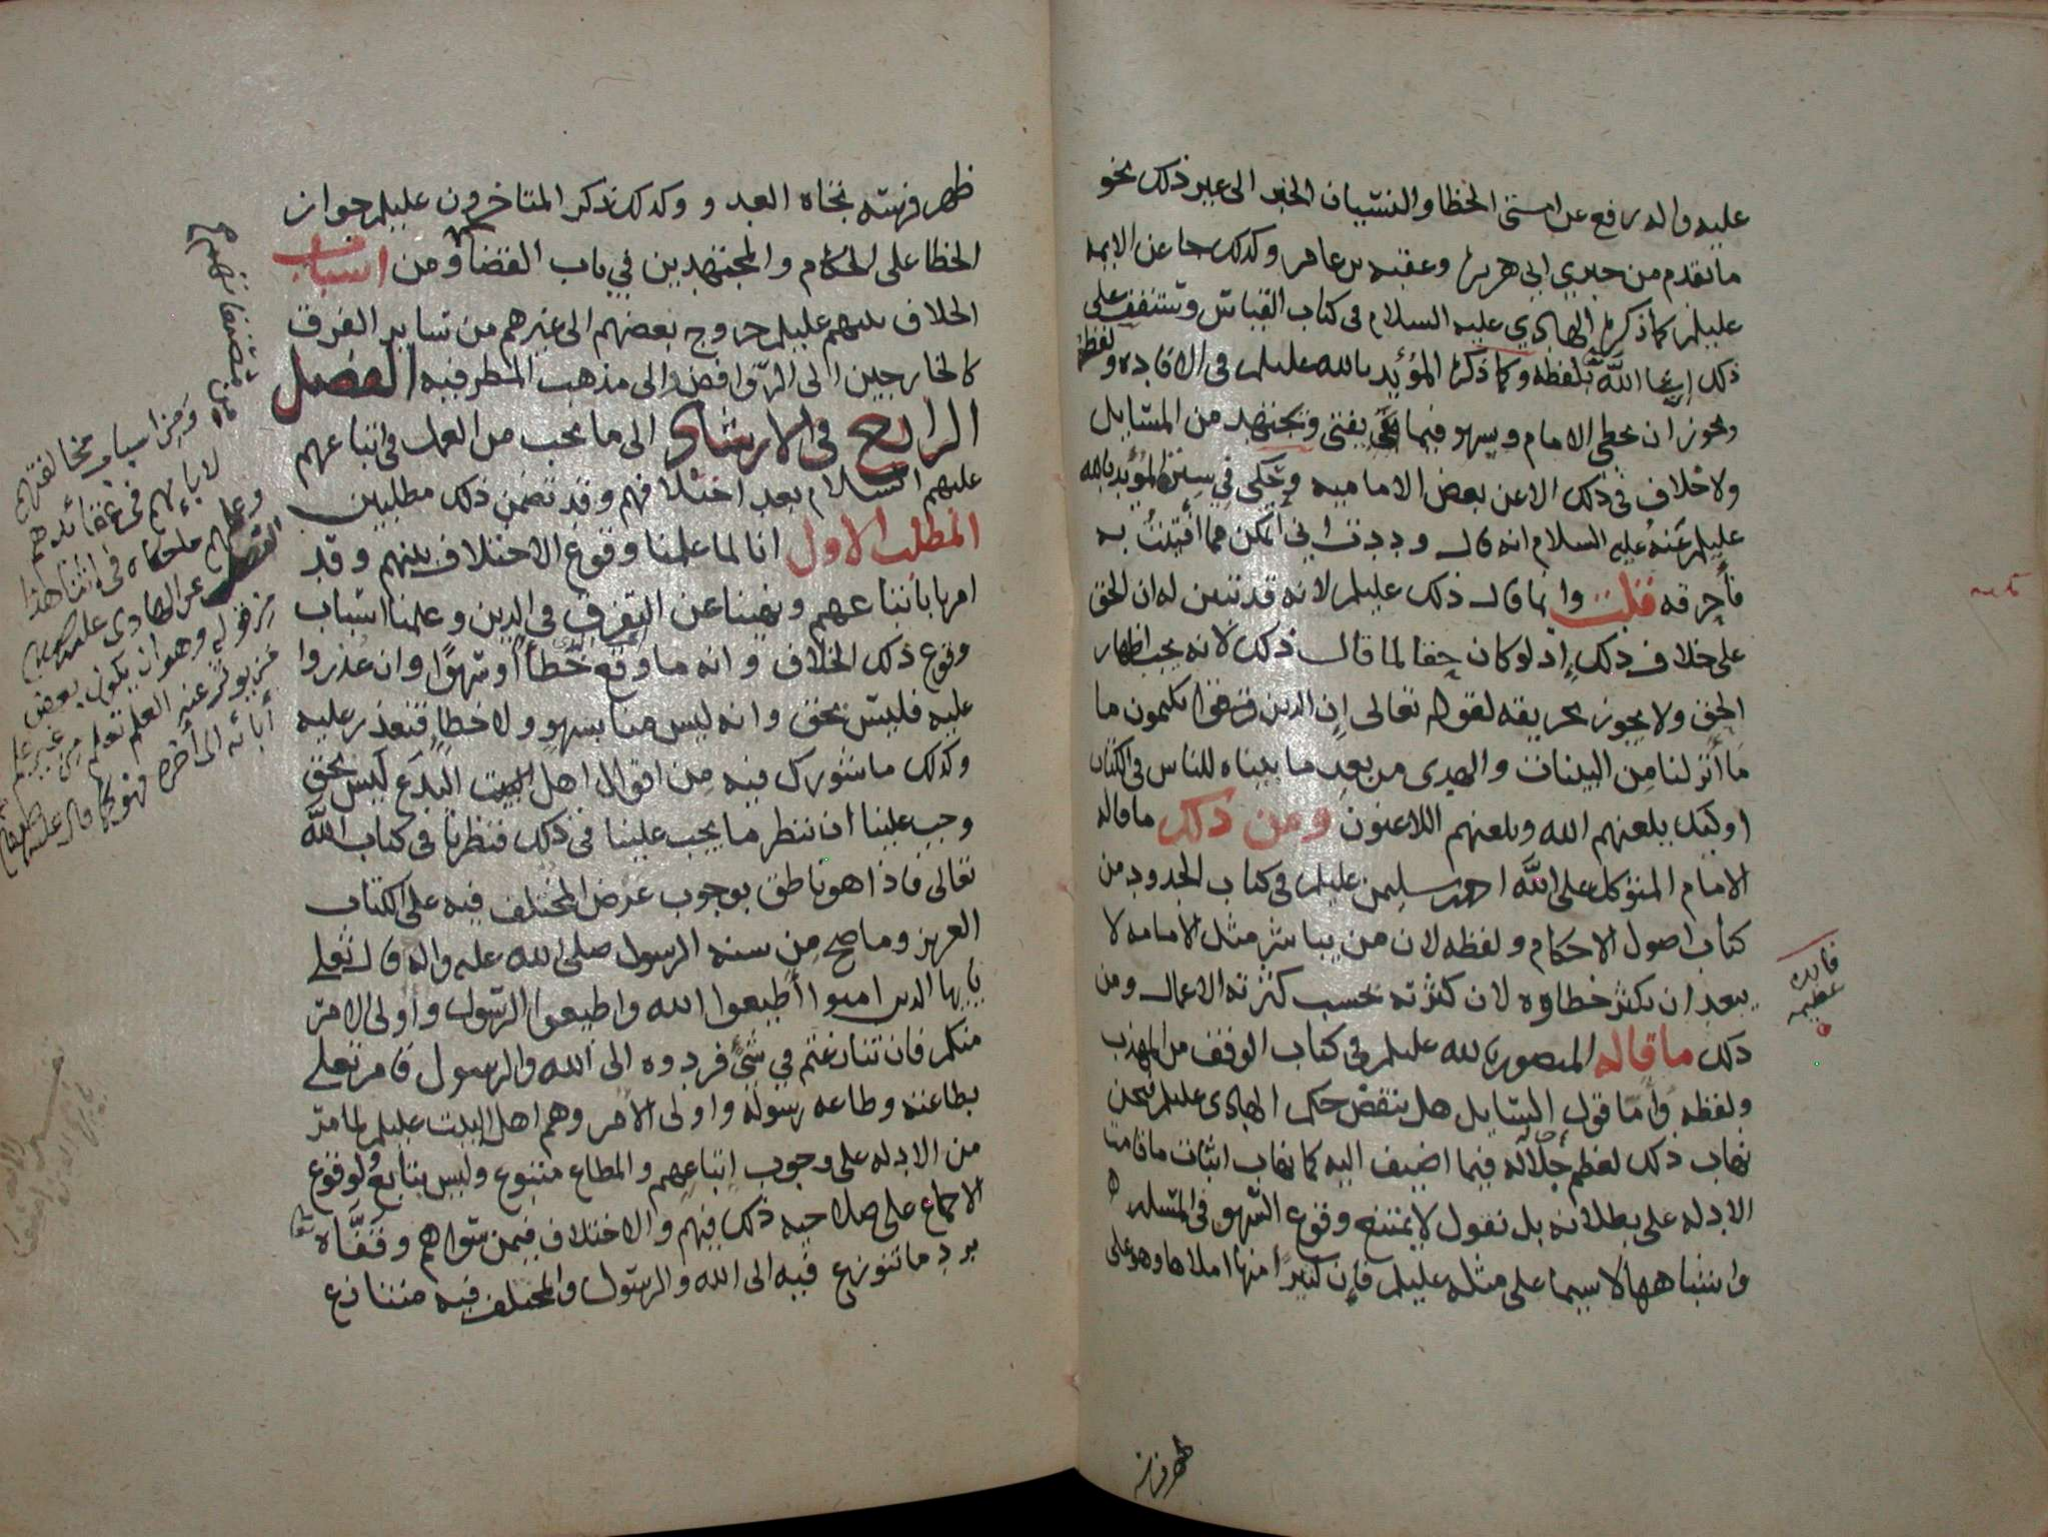 عليه واله رفع عن امتي الخطا والنسيان الخبر الى غير ذلك نحو
ما تقدم من خبري ابي هريرة وعقبه بن عامر وكذلك جا عن الايمه
عليلم كما ذكره الهادي عليه السلام في كتاب القياس وستقف على
ذلك انشا الله بلفظه وكما ذكره المؤيد بالله عليلم في الافاده ولفظه
ويجوز ان يخطي الامام ويسهو فيما يفتى ويجتهد من المسايل
ولا خلاف في ذلك الا عن بعض الاماميه ويحكى في سيرة المؤيد بالله
عليلم عنه عليه السلام انه قال وددت اني اتمكن مما افتيت به
فأحرقه قلت وانما قال ذلك عليلم لانه قد تبين له ان الحق
على خلاف ذلك إذ لو كان حقا لما قال ذلك لانه يجب اظهار
الحق ولا يجوز تحريقه لقوله تعالى إن الذين يكتمون ما
ما أنزلنا من البينات والهدى من بعد ما بيناه للناس في الكتاب
اوليك يلعنهم الله ويلعنهم اللاعنون ومن ذلك ما قاله
الامام المتوكل على الله احمد بن سليمن عليلم في كتاب الحدود من
كتاب اصول الاحكام ولفظه لان من يباشر مثل الامامه لا
يبعد ان يكثر خطاوه لان كثرته بحسب كثرته الاعمال ومن
ذلك ما قاله المنصور بالله عليلم في كتاب الوقف من المهذب
ولفظه وأما قول السايل هل ينقض حكم الهادى عليلم فنحن
نهاب ذلك لعظم جلاله فيما اضيف اليه كما نهاب اثبات ما قامت
الادله على بطلانه بل نقول لا يمتنع وقوع السهو في المسله
واشباهها لا سيما على مثله عليلم فإن كثيرا منها املاها وهو على
فايده
عظيمه
ظهر فرسه
ظهر فرسه تجاه العدو وكذلك ذكر المتاخرون عليلم جواز
الخطا على الحكام والمجتهدين في باب القضا ومن اسباب
الخلاف بينهم عليلم خروج بعضهم الى غيرهم من ساير الفرق
كالخارجين الى الروافض والى مذهب المطرفيه الفصل
الرابع في الارشاد الى ما يجب من العمل في اتباعهم
عليهم السلام بعد اختلافهم وقد تضمن ذلك مطلبين
المطلب الاول انا لما علمنا وقوع الاختلاف بينهم وقد
امرنا باتباعهم ونهينا عن التفرق في الدين وعلمنا اسباب
وقوع ذلك الخلاف وانه ما وقع خطأ أو سهوًا وان عذروا
عليه فليس بحق وانه ليس منا بسهو ولا خطا فنعذر عليه
وكذلك ما شورك فيه من اقوال اهل البيت البدع ليس بحق
وجب علينا ان ننظر ما يجب علينا في ذلك فنظرنا في كتاب الله
تعالى فاذا هو ناطق بوجوب عرض المختلف فيه على الكتاب
العزيز وما صح من سنه الرسول صلى الله عليه واله قال تعالى
يايها الذين امنوا أطيعوا الله واطيعوا الرسول واولى الامر
منكم فان تنازعتم في شيء فردوه الى الله والرسول فامر تعلى
بطاعته وطاعه رسوله واولى الامر وهم اهل البيت عليلم لما مر
من الادله على وجوب اتباعهم والمطاع متبوع وليس بتابع ولوقوع
الاجماع على صلاحيه ذلك فيهم والاختلاف فيمن سواهم وقفاه
برد ما تنوزع فيه الى الله والرسول والمختلف فيه متنازع
ومن اسباب مخالفتهم
لابايهم في عقائدهم
وعلى ما حكاه في اثنا هذا
الفصل عن الهادى عليه السلام
من قوله وهو ان يكون بعض